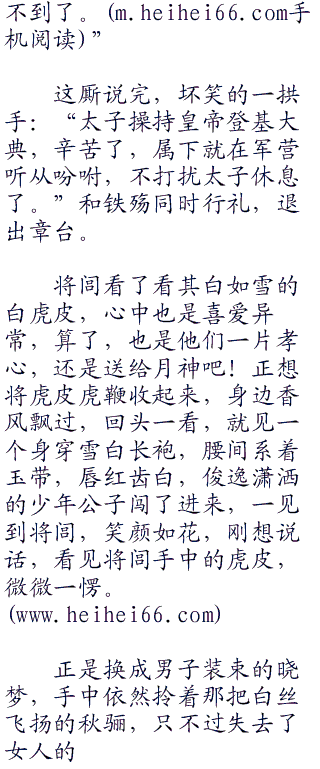 不到了。(m.heihei66.com手
机阅读)”
这厮说完，坏笑的一拱
手：“太子操持皇帝登基大
典，辛苦了，属下就在军营
听从吩咐，不打扰太子休息
了。”和铁殇同时行礼，退
出章台。
将闾看了看其白如雪的
白虎皮，心中也是喜爱异
常，算了，也是他们一片孝
心，还是送给月神吧！正想
将虎皮虎鞭收起来，身边香
风飘过，回头一看，就见一
个身穿雪白长袍，腰间系着
玉带，唇红齿白，俊逸潇洒
的少年公子闯了进来，一见
到将闾，笑颜如花，刚想说
话，看见将闾手中的虎皮，
微微一愣。
(www.heihei66.com)
正是换成男子装束的晓
梦，手中依然拎着那把白丝
飞扬的秋骊，只不过失去了
女人的